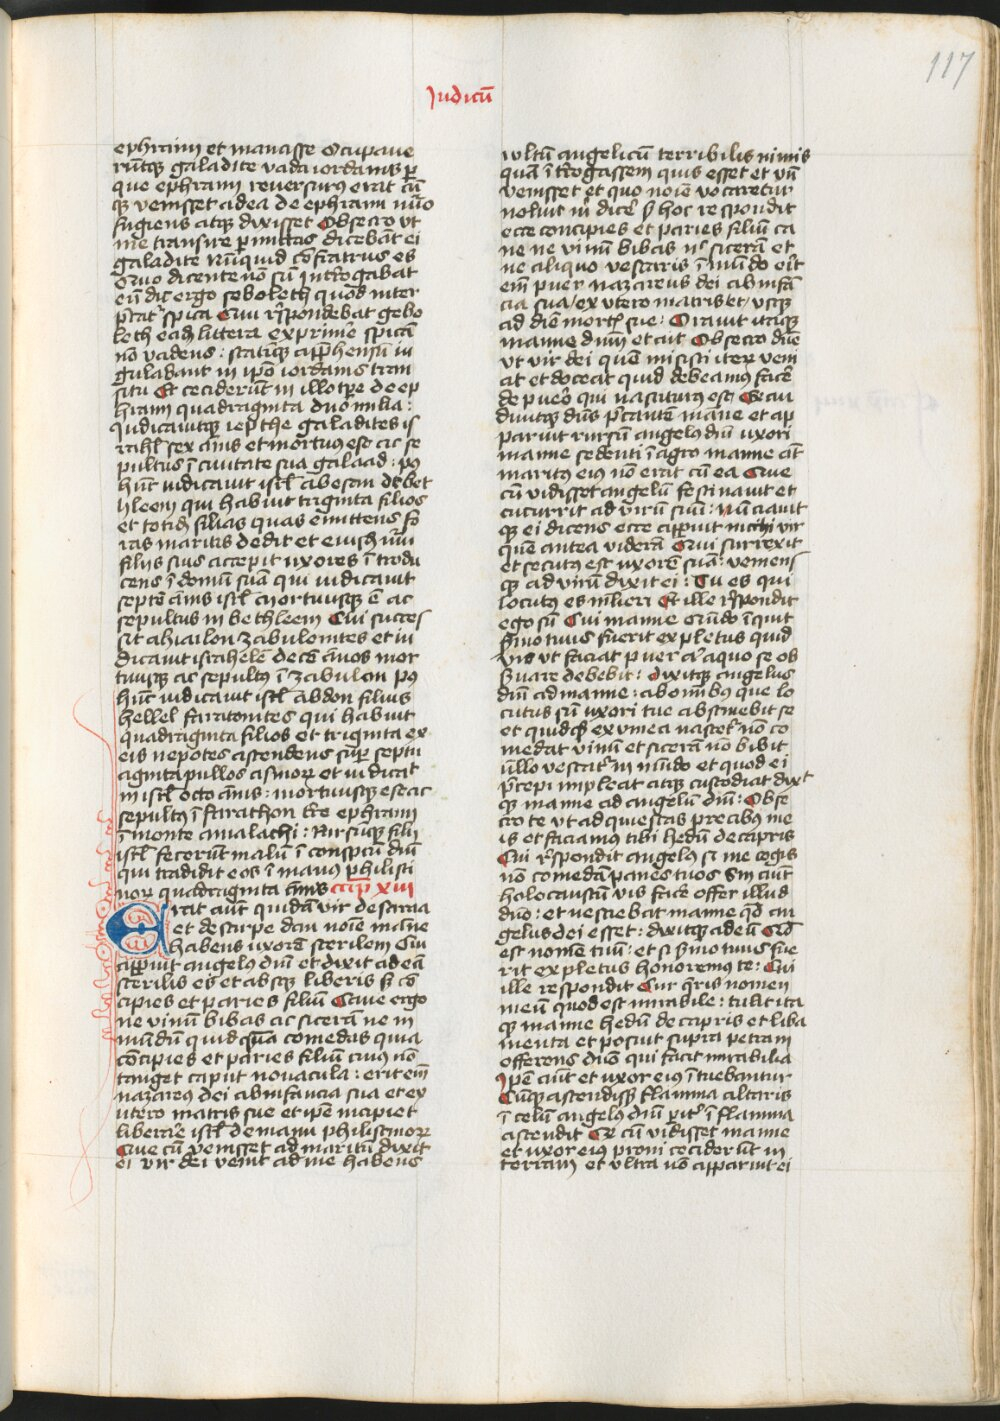 117
Iudicū
ephraim et manasse Occupave
rūtqꝫ galadite vada iordanis ꝑ
que ephraim reversurus erat cū
qꝫ venisset adea de ephraim nūo
fugiens atqꝫ dixisset Obsecro vt
me transire ꝑmittas dicebāt ei
galadite nūquid eōfratrus es
Quo dicente nō sū ītrogabāt
eū dic ergo seboleth quod inter
p̄tat᷑ spica Qui rn̄pondebat gebo
leth eadē littera exprimē spicā
nō valens : statīqꝫ app̄hensū iu
gulabant in ip̄o iordanis tran
situ Et ceciderūt in illo tꝑe de ep
hraim quadraginta duo milia :
Iudicavitqꝫ iepthe galadites is
rahl̄ sex anis et mortuus est ac se
pultus ī civitate sua galaad : pꝰ
hūc iudicavit isrl̄ abesan de bet
hleem qui habuit triginta filios
et totidē filias quas emittens fo
ras maritis dedit et eiusdē nūi
filijs suis accepit uxores ī trodu
cens ī domū suā qui iudicavit
septē anis isrl̄ mortuusqꝫ ē ac
sepultus in bethleem Cui succes
sit ahiailon zabulonites et iu
dicavit israhelē decē anos mor
tuusqꝫ ac sepultꝰ ī zabulon pꝰ
hūc iudicavit isrl̄ abdon filius
hellel faratonites qui habuit
quadraginta filios et triginta ex
eis nepotes ascendens suꝑ septu
aginta pullos asinoꝝ et iudicat
in isrl̄ octo anis : mortuusqꝫ est ac
sepultꝰ ī farathon tr̄e ephraim
ī monte amalachi : Rursuqꝫ filij
isrl̄ fecerūt malū ī conspcū dn̄i
qui tradidit eos ī manꝰ philisti
noꝝ quadraginta annis cap xiii
Erat aut̄ quidā vir de saraa
et de stirpe dan noīe manue
habens uxorē sterilem Cui
apparuit angelꝰ dn̄i et dixit ad eā
sterilis es et absqꝫ liberis sꝫ cō
cipies et paries filiū Cave ergo
ne vinū bibas ac sicerā ne in
mūdū quidquā comedas quia
cōcipies et paries filiū cuius nō
tanget caput novacula : erit em̄
nazareꝰ dei ab infancia sua et ex
utero matris sue et ip̄e incipiet
liberare isrl̄ de manu philistinoꝝ
Que cū venisset ad maritū dixit
ei vir dei venit ad me habens
vultū angelicū terribilis nimis
quā ītrogassem quis esset et vn̄
venisset et quo noīe vocaretur
noluit m̄ dicē sꝫ hoc respondit
ecce concipies et paries filiū ca
ne ne vinū bibas nec sicerā et
ne aliquo vescaris īmūdo erit
em̄ puer nazareus dei ab infā
cia sua/ex utero matris et/ vsqꝫ
ad diē mortꝭ sue : Oravit itaqꝫ
manne dnm et ait Obsecro dn̄e
vt vir dei quē misisti iteꝝ veni
at et doceat quid debeamꝰ facē
de puero qui nasciturꝰ est Exau
divitqꝫ dn̄s p̄cantē māne et ap
paruit rursum angelꝰ dn̄i uxori
manne sedenti ī agro manne aūt
maritꝰ eiꝰ nō erat cū ea Que
cū vidisset angelū festinavit et
cucurrit ad virū suū : nūciavit
qꝫ ei dicens ecce apparuit michi vir
quē antea viderā Qui surrexit
et secutꝰ est uxorē suā : veniens
qꝫ ad virū dixit ei : Tu es qui
locutꝰ es mlieri Et ille rn̄pondit
ego sū Cui manne Quādo īquit
sermo tuus fuerit expletus quid
vis vt faciat puer a᷑ a quo se ob
servare debebit : Dixitqꝫ angelus
dn̄i ad manne : ab omībꝰ que lo
cutus sū uxori tue abstinebit se
et quidqꝫ ex vinea nascet᷑ nō co
medat vinū et sicerā nō bibit
nllo vescat᷑ in mūdo et quod ei
p̄cepi impleat atqꝫ custodiat dixt
qꝫ manne ad angelū dn̄i : Obse
cro te vt adquiescas precibꝰ me
is et faciamꝰ tibi hedū de capris
Cui rn̄spondit angelꝰ si me cogis
nō comedā panes tuos Sin aūt
holocaustū vis facē offer illud
dn̄o : et nesciebat manne qd̄ an
gelus dei esset : dixitqꝫ ad eū Qd̄
est nomē tuū : et si sermo tuus fue
rit expletus honoremꝰ te : Cui
ille respondit Cur q̄ris nomen
meū quod est mirabile : tulit ita
qꝫ manne hedū de capris et liba
menta et posuit supra petram
offerens dn̄o qui facit mirabilia
Ipē aūt et uxor eiꝰ ītuebantur
Cūqꝫ ascendisꝫ flamma altaris
ī celū angelꝰ dn̄i pit᷑ ī flamma
ascendit Qꝫ cū vidisset manne
et uxor eiꝰ proni ceciderūt in
terram et ultra nō apparuit ei